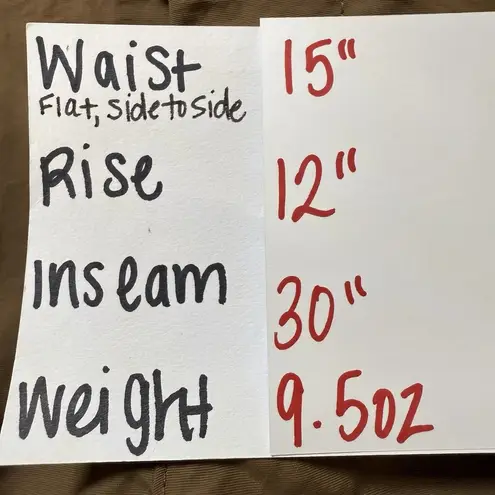 Waist 15"
Flat, side to side
Rise 12"
Inseam 30"
Weight 9.5oz